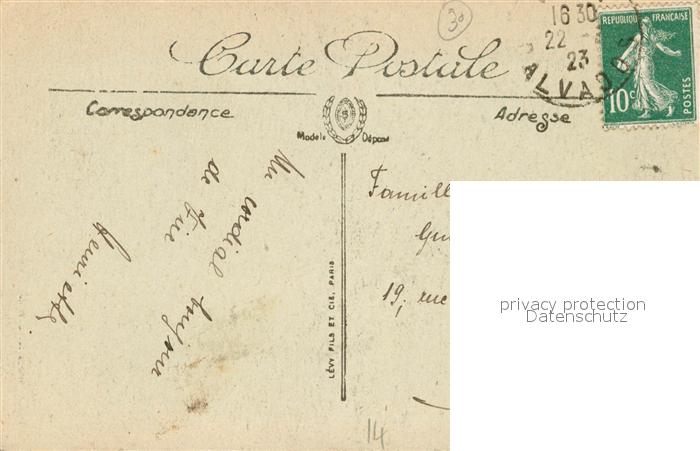 30
16 30
22
23
ALVADOS
REPUBLIQUE FRANÇAISE
10c
POSTES
Carte Postale
Correspondance
Adresse
Modèle Déposé
LÉVY FILS ET CIE, PARIS
cordial
de
Henriette
Famill
19, rue
14
privacy protection
Datenschutz